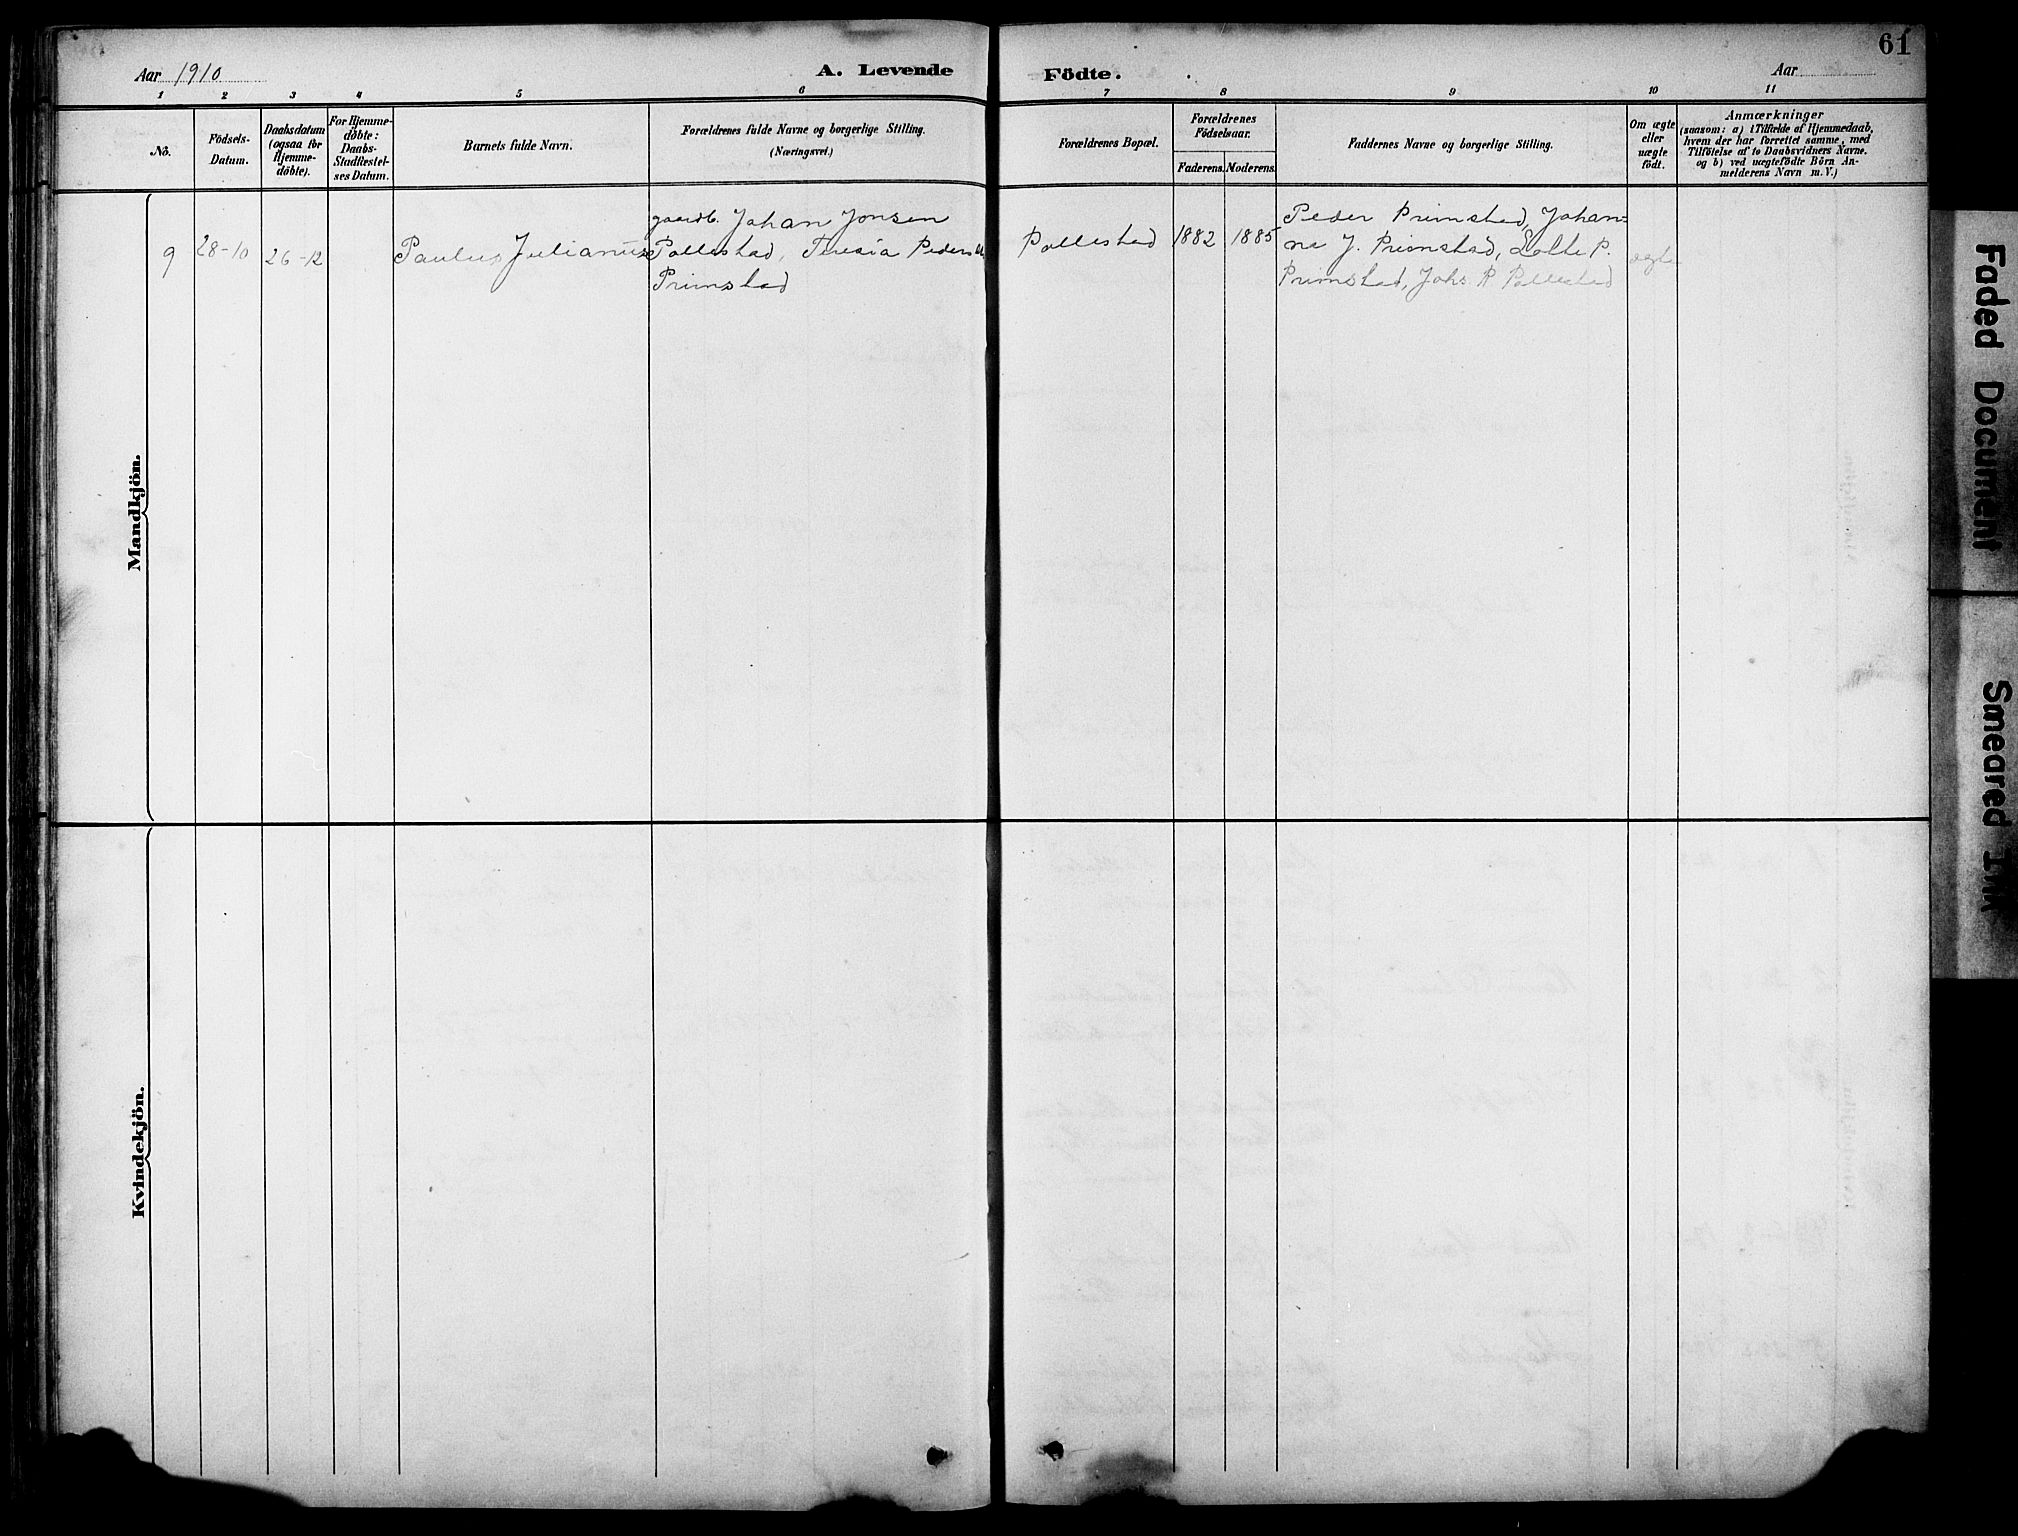 61
Aar 1910
A. Levende
Födte.
Aar
1 2 3 4 5 6 7 8 9 10 11
No.
Födsels-
Datum.
Daabsdatum
(ogsaa for
Hjemme-
døbte).
For Hjemme-
døbte:
Daabs-
Stadfæstel-
ses Datum.
Barnets fulde Navn.
Forældrenes fulde Navne og borgerlige Stilling.
(Næringsvei.)
Forældrenes Bopæl.
Forældrenes
Födselsaar.
Faderens. Moderens.
Faddernes Navne og borgerlige Stilling.
Om ægte
eller
uægte
født.
Anmærkninger
(saasom: a) i Tilfælde af Hjemmedaab,
hvem der har forrettet samme, med
Tilföielse af to Daabsvidners Navne.
og b) ved uægtefödte Börn An-
melderens Navn m. V.)
Mandkjön.
9
28-10
26-12
Paulus Julianus
gaardb. Johan Jonsen
Pollestad, Teresia Pedersdt.
Primstad
Pollestad
1882
1885
Peder Primstad, Johan-
ne J. Primstad, Lotte P.
Primstad, Johs. P. Pollestad
ægte
Kvindekjön.
Faded Document
Smeared Ink